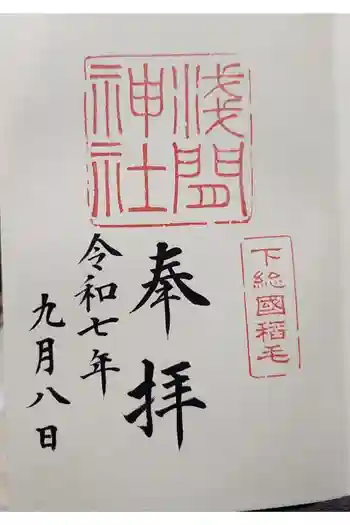 下総國稲毛
淺間
神社
奉拝
令和七年
九月八日